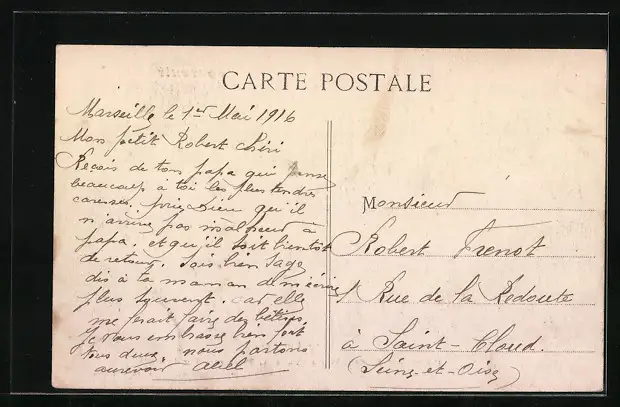 CARTE POSTALE
Marseille le 1er Mai 1916
Mon petit Robert chéri
Reçois de ton papa qui pense
beaucoup à toi les plus tendres
caresses. prie Dieu qu'il
n'arrive pas malheur à
papa. et qu'il soit bientôt
de retour. Sois bien sage
dis à ta maman de m'écrire
plus souvent. car elle
me ferait faire des bêtises
Je vous embrasse bien fort
tous deux. nous partons
aurevoir Abel
Monsieur
Robert Frenot
Rue de la Redoute
à Saint-Cloud.
(Seine-et-Oise)